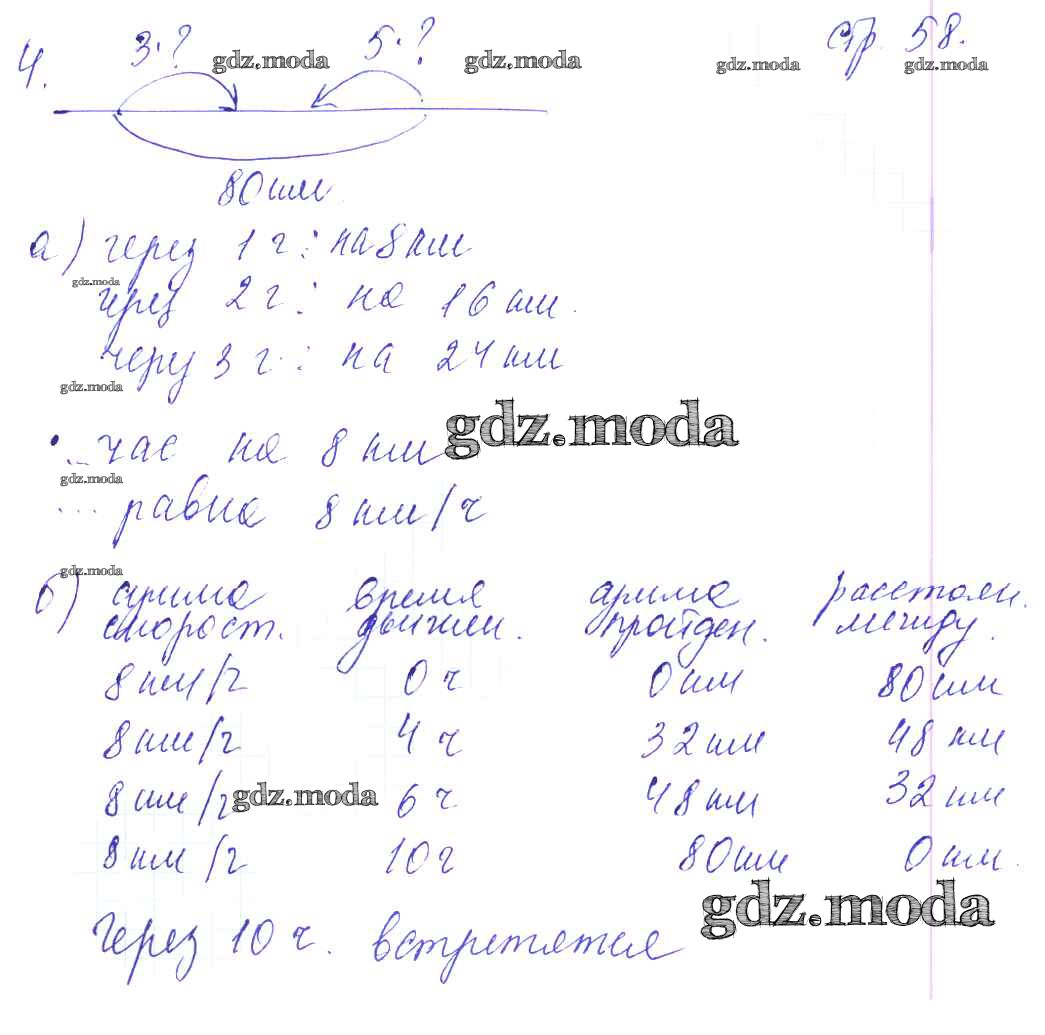 стр. 58.
4. 3·? 5·?
gdz.moda gdz.moda gdz.moda gdz.moda
80 км
а) через 1 ч: на 8 км
gdz.moda
через 2 ч: на 16 км.
через 3 ч: на 24 км
gdz.moda
gdz.moda
... час на 8 км
gdz.moda
... равна 8 км/ч
gdz.moda
б) сумма время сумма расстоян.
скорост. движен. пройден. между.
8 км/ч 0 ч 0 км 80 км
8 км/ч 4 ч 32 км 48 км
8 км/ч 6 ч 48 км 32 км
gdz.moda
8 км/ч 10 ч 80 км 0 км.
gdz.moda
Через 10 ч. встретятся